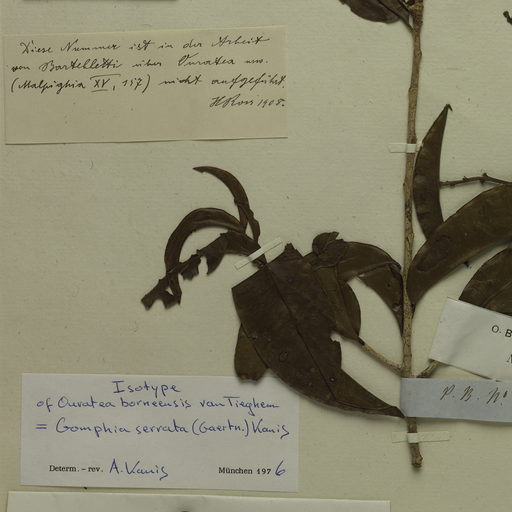 Diese Nummer ist in der Arbeit
von Bartelletti über Ouratea usw.
(Malpighia XV, 157) nicht aufgeführt.
H Ross 1908.
O. B
P. B. No
Isotype
of Ouratea borneensis van Tieghem
= Gomphia serrata (Gaertn.) Kanis
Determ. – rev. A. Kanis München 1976